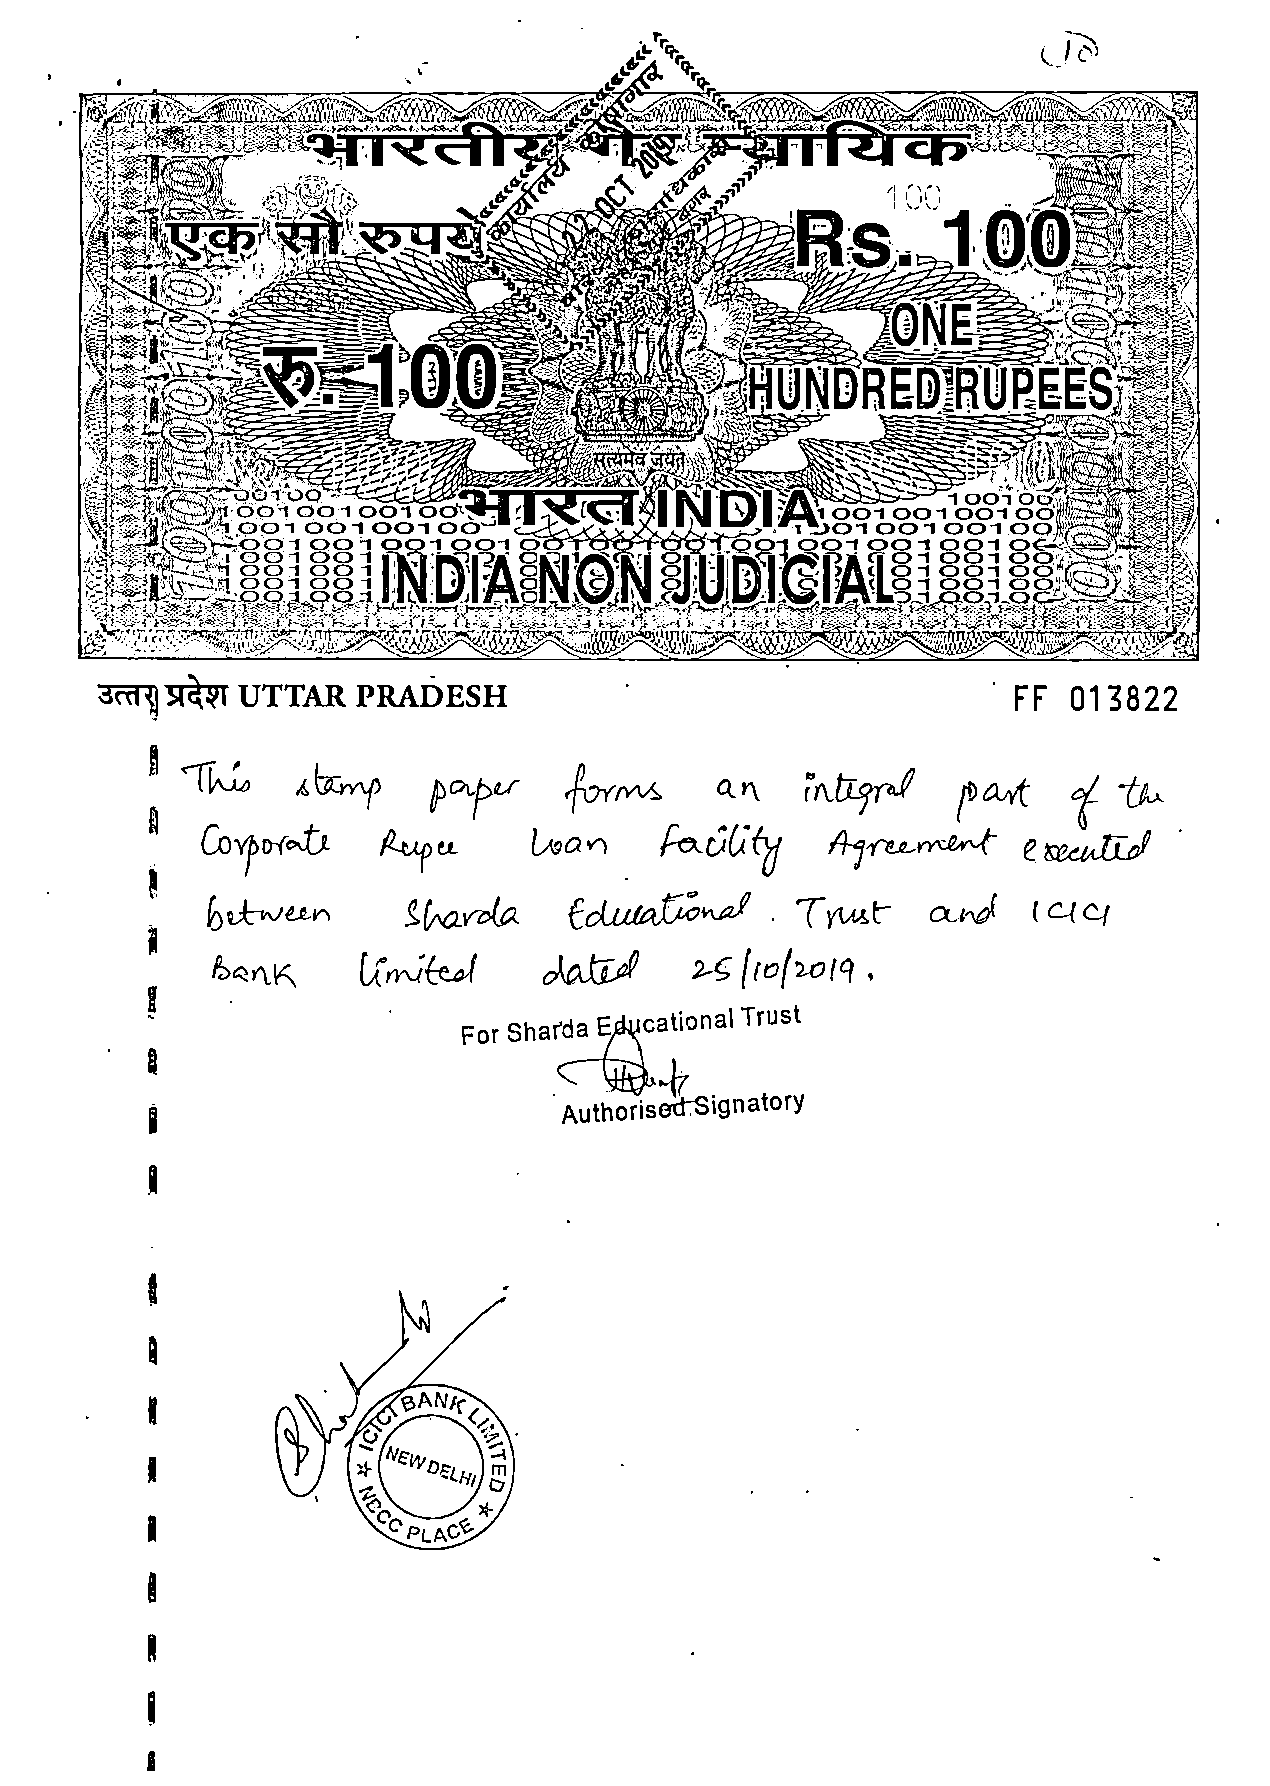 10
भारतीय गैर न्यायिक
कार्यालय कोषागार
OCT 2019
100
एक सौ रुपये
Rs. 100
रु. 100
ONE
HUNDRED RUPEES
सत्यमेव जयते
भारत INDIA
INDIA NON JUDICIAL
उत्तर प्रदेश UTTAR PRADESH
FF 013822
This stamp paper forms an integral part of the
Corporate Rupee Loan Facility Agreement executed
between Sharda Educational Trust and ICICI
Bank Limited dated 25/10/2019.
For Sharda Educational Trust
Authorised Signatory
ICICI BANK LIMITED
NEW DELHI
PLACE